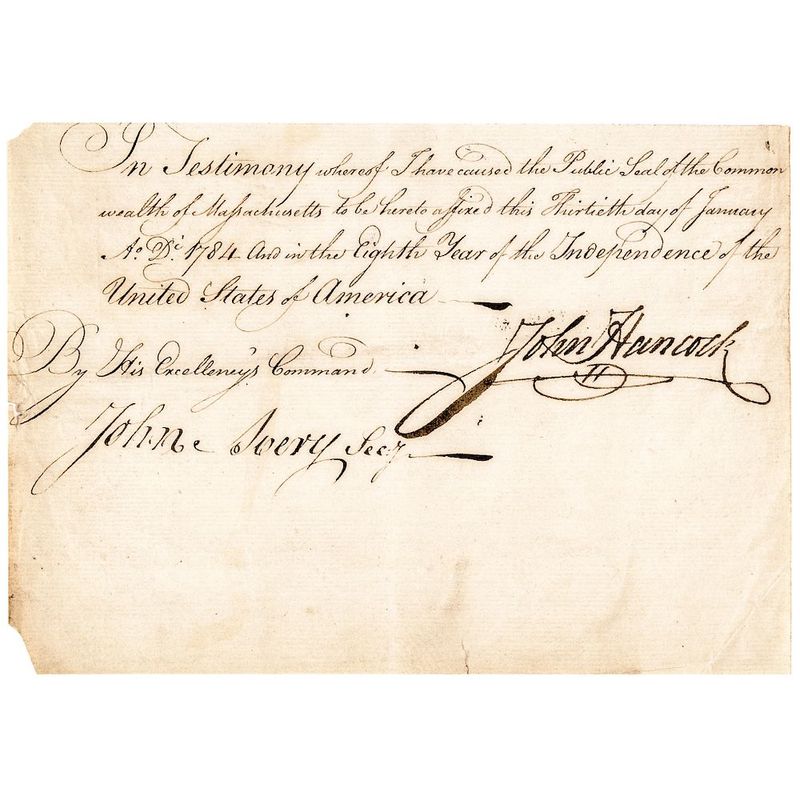 In Testimony whereof I have caused the Public Seal of the Common
wealth of Massachusetts to be hereto affixed this Thirtieth day of January
Ao. Di. 1784 And in the Eighth Year of the Independence of the
United States of America
John Hancock
By His Excellency's Command
John Avery Secy